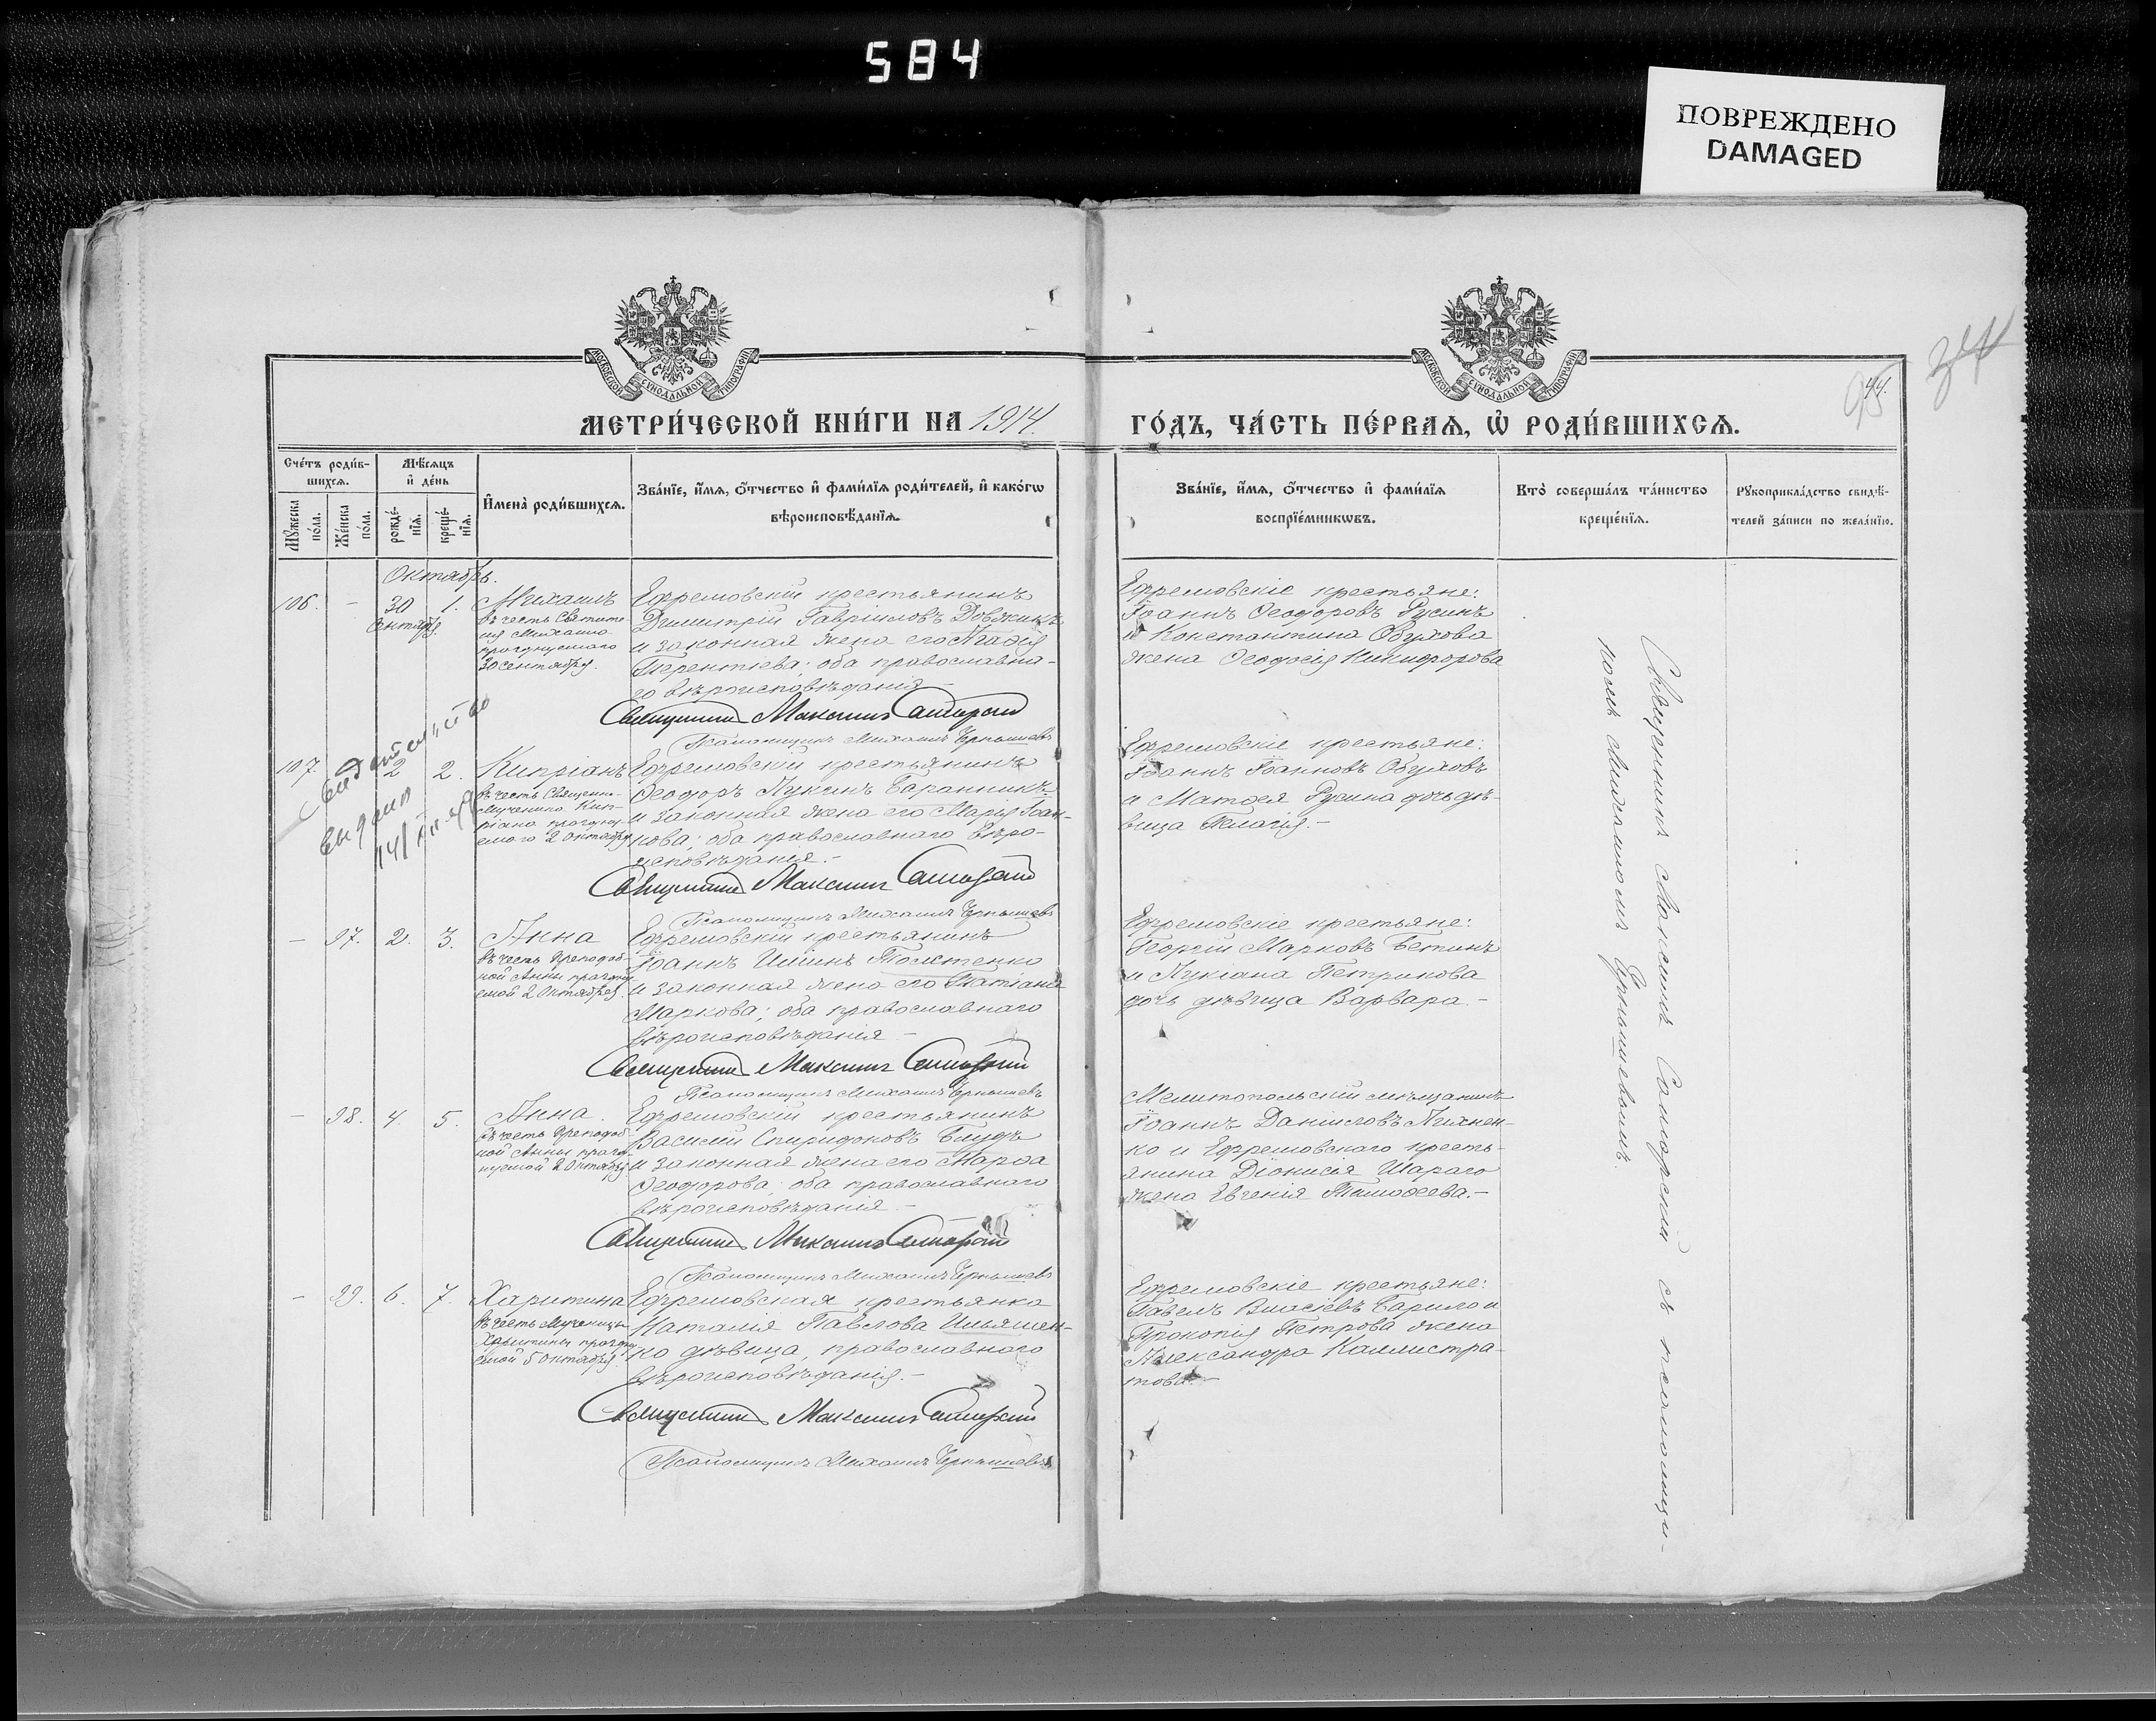 584
ПОВРЕЖДЕНО
DAMAGED
МОСКОВСКОЙ СѴНОДАЛЬНОЙ ТИПОГРАФІИ
МОСКОВСКОЙ СѴНОДАЛЬНОЙ ТИПОГРАФІИ
44.
95
МЕТРИ́ЧЕСКОЙ КНИ́ГИ НА 1914.
ГО́ДЪ, ЧА́СТЬ ПЕ́РВАѦ, Ѡ҆ РОДИ́ВШИХСѦ.
Сче́тъ роди́в-
шихсѧ.
Мꙋ́жеска по́ла.
Же́нска по́ла.
Мѣ́сѧцъ
и҆ де́нь
рожде́-
нїѧ.
креще́-
нїѧ.
И҆мена̀ роди́вшихсѧ.
Зва́нїе, и҆́мѧ, ѻ҆́тчество и҆ фами́лїѧ роди́телей, и҆ како́гѡ
вѣроисповѣ́данїѧ.
Зва́нїе, и҆́мѧ, ѻ҆́тчество и҆ фами́лїѧ
воспрїе́мникѡвъ.
Кто̀ соверша́лъ та́инство
креще́нїѧ.
Рꙋкоприкла́дство свидѣ́-
телей за́писи по жела́нїю.
Октябрь.
106. - 30 Сентябр. 1.
Михаилъ
въ честь Святите-
ля Михаила
празднуемаго
30 сентября.
Ефремовскій крестьянинъ
Димитрій Гавріиловъ Довжикъ
и законная жена его Агафія
Терентіева; оба православна-
го вѣроисповѣданія.-
Священникъ Максимъ
Псаломщикъ Михаилъ Чернышевъ
Ефремовскіе крестьяне:
Іоаннъ Ѳеодоровъ Русинъ
и Константина Обухова
жена Ѳеодосія Никифорова
Свидѣтельство
выдано
107. - 2 2.
Кипріанъ
въ честь Священно-
мученика Кип-
ріана празdну-
емаго 2 октября
Ефремовскій крестьянинъ
Ѳеодоръ Лукинъ Баранникъ
и законная жена его Марія Іоан-
нова; оба православнаго вѣро-
исповѣданія.-
Священникъ Максимъ
Псаломщикъ Михаилъ Чернышевъ
Ефремовскіе крестьяне:
Іоаннъ Іоанновъ Обуховъ
и Матѳея Русина дочь дѣ-
вица Пелагія.-
- 97. 2. 3.
Анна
въ честь Преподоб-
ной Анны праздну-
емой 2 Октября.
Ефремовскій крестьянинъ
Іоаннъ Ильинъ Толстенко
и законная жена его Татіана
Маркова; оба православнаго
вѣроисповѣданія.-
Священникъ Максимъ
Псаломщикъ Михаилъ Чернышевъ
Ефремовскіе крестьяне:
Георгій Марковъ Бетинъ
и Лукіана Петрикова
дочь дѣвица Варвара.-
- 98. 4. 5.
Анна.
въ честь Преподоб-
ной Анны празд-
нуемой 2 Октября
Ефремовскій крестьянинъ
Василій Спиридоновъ Блудъ
и законная жена его Марѳа
Ѳеодорова; оба православнаго
вѣроисповѣданія.-
Священникъ Максимъ
Псаломщикъ Михаилъ Чернышевъ
Мелитопольскій мѣщанинъ
Іоаннъ Даніиловъ Лихнен-
ко и Ефремовскаго кресть-
янина Діонисія Шараго
жена Евгенія Тимоѳеева.-
- 99. 6. 7.
Харитина
въ честь Мученицы
Харитины праздну-
емой 5 октября
Ефремовская крестьянка
Наталія Павлова Ильяшен-
ко дѣвица, православнаго
вѣроисповѣданія.-
Священникъ Максимъ
Псаломщикъ Михаилъ Чернышевъ
Ефремовскіе крестьяне:
Павелъ Власіевъ Барило и
Прокопія Петрова жена
Александра Каллистра-
това.-
Священникъ Максимъ съ псаломщи-
комъ Михаиломъ Чернышевымъ.